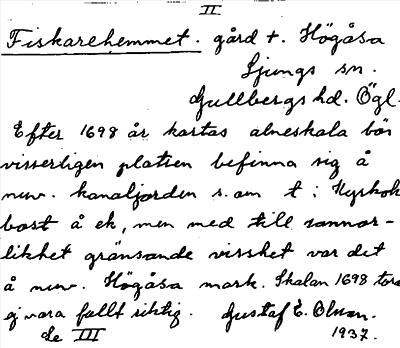 II
Fiskarehemmet. gård t. Högåsa
Ljungs sn.
Gullbergs hd. Ögl.
Efter 1698 år kartas alneskala bör
visserligen platsen befinna sig å
nuv. kanaljorden s. om t i Kyrkok
bost å ek, men med till sannor-
likhet gränsande visshet var det
å nuv. Högåsa mark. Skalan 1698 tord
ej vara fullt riktig. Gustaf E. Olsson.
Se III 1937.